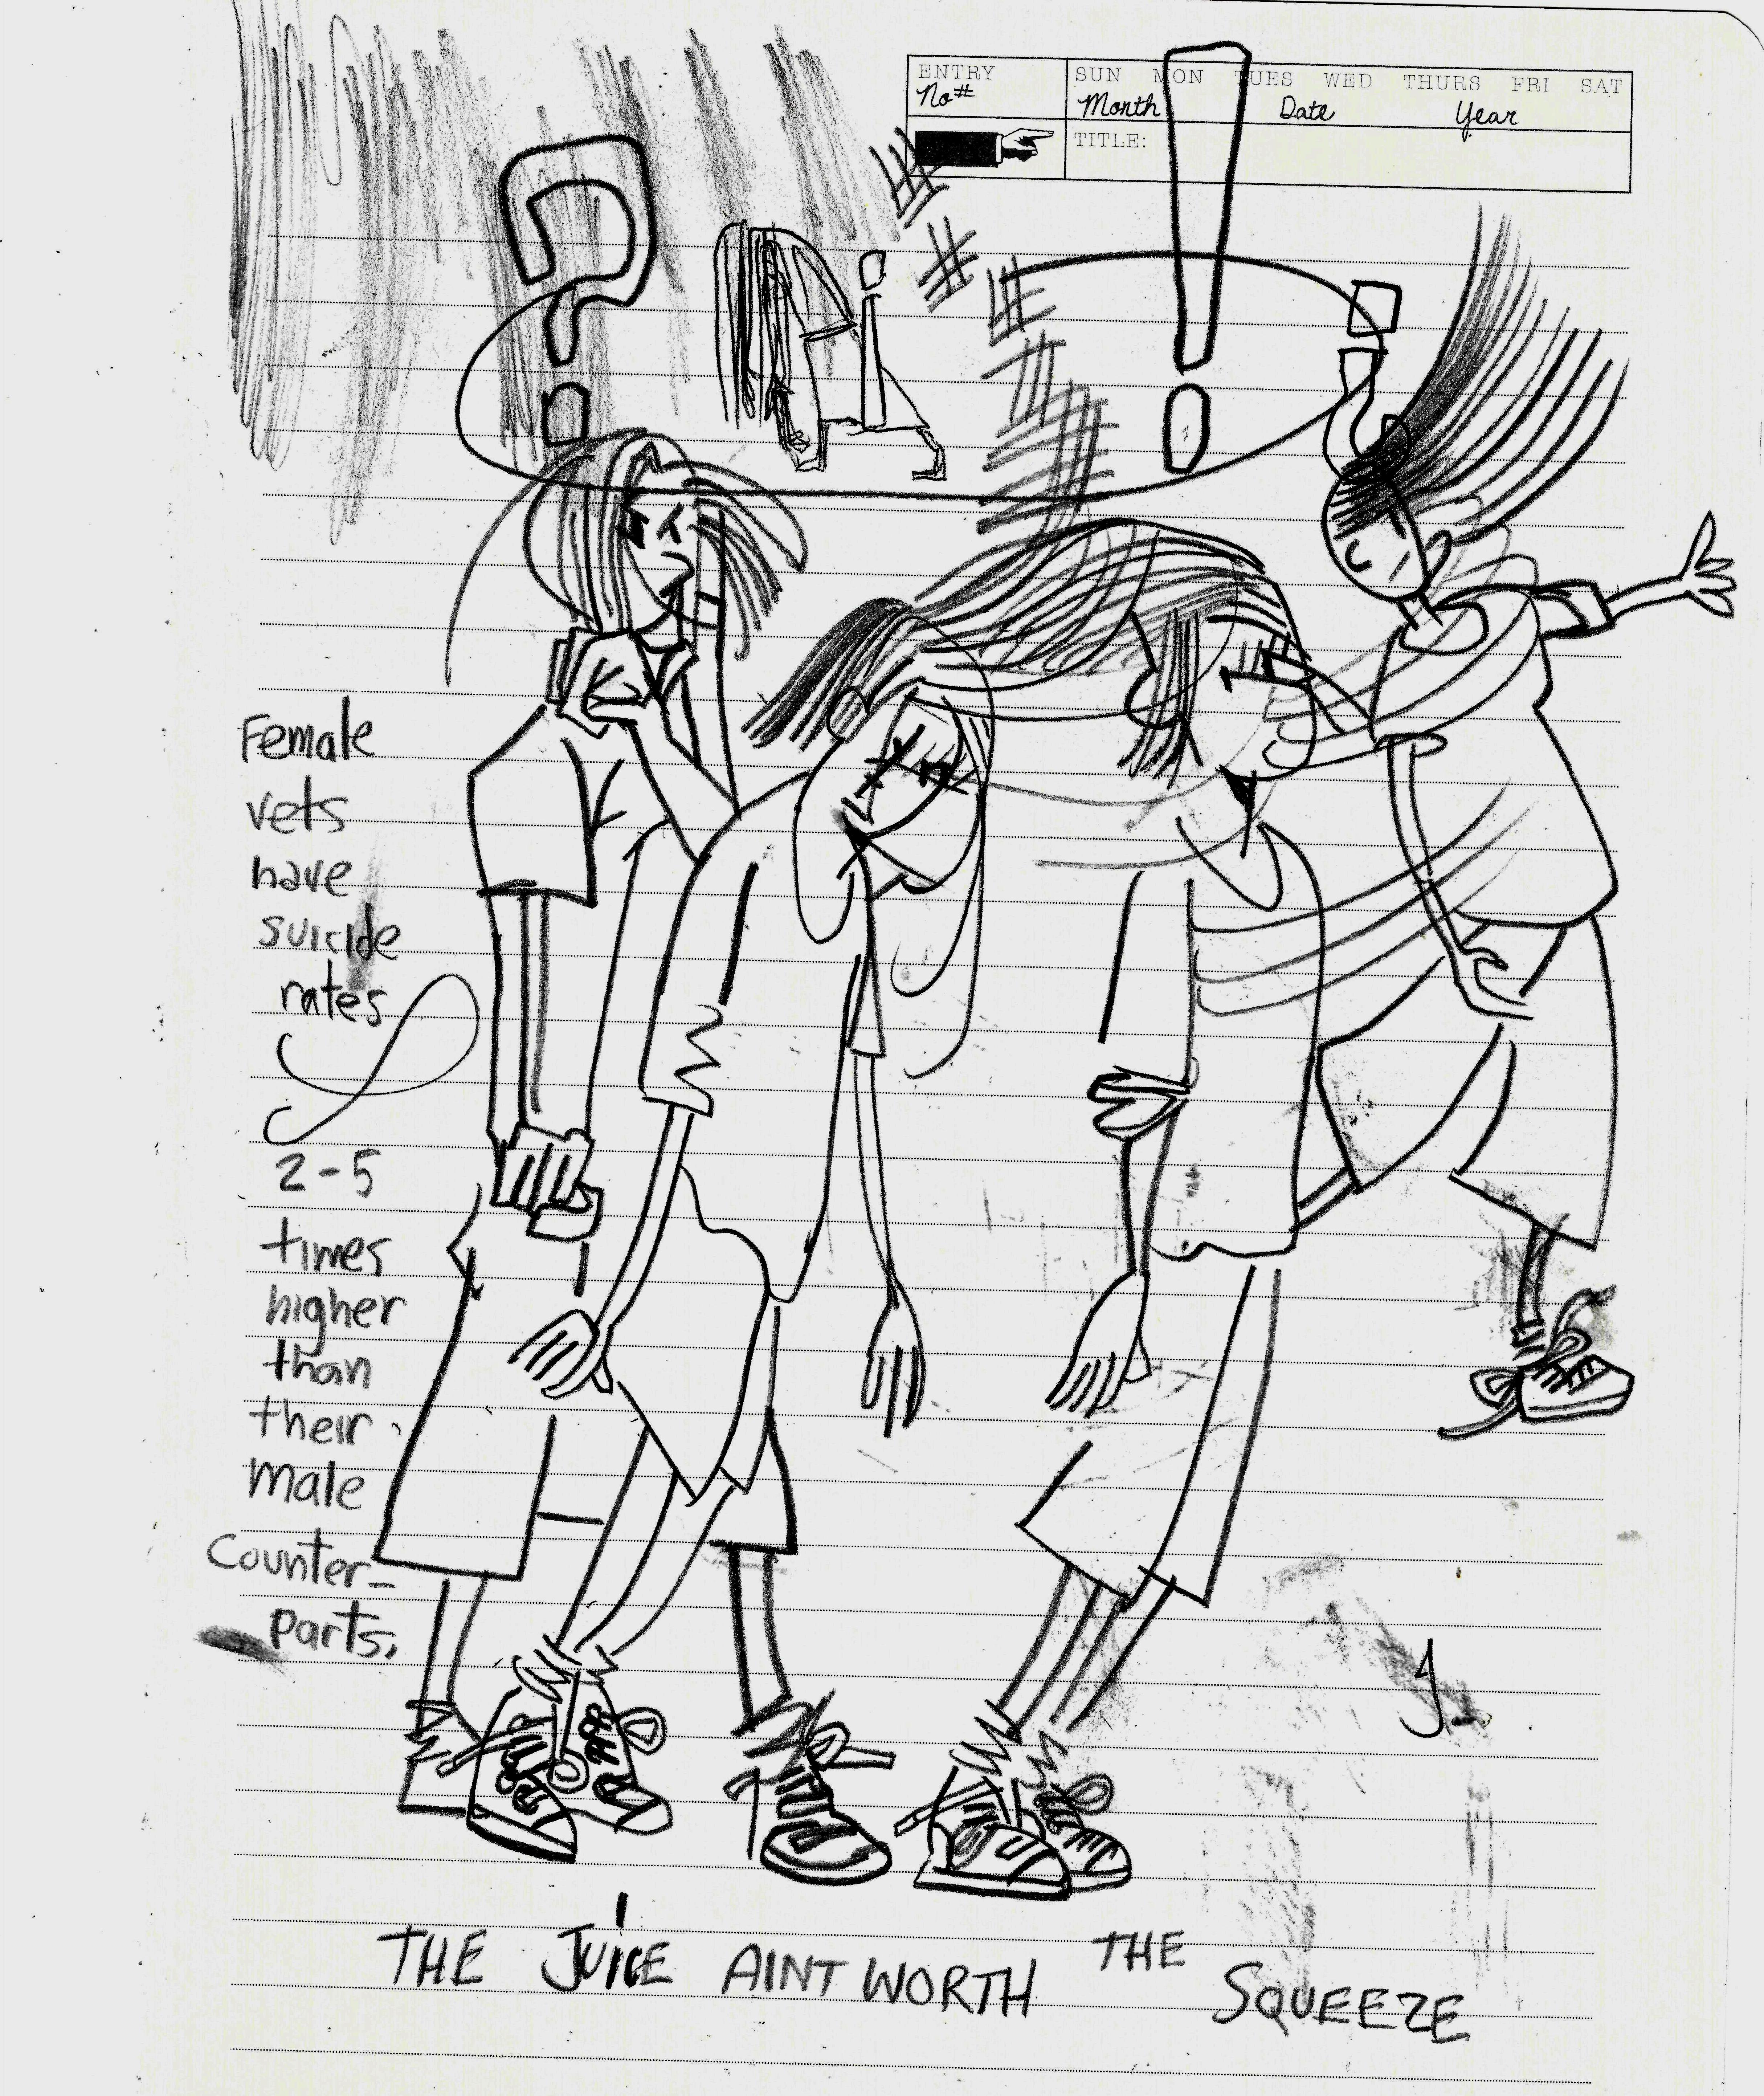 ENTRY
No#
SUN MON TUES WED THURS FRI SAT
Month Date Year
TITLE:
Female
vets
have
suicide
rates
2-5
times
higher
than
their
male
Counter-
parts.
THE JUICE AINT WORTH THE SQUEEZE